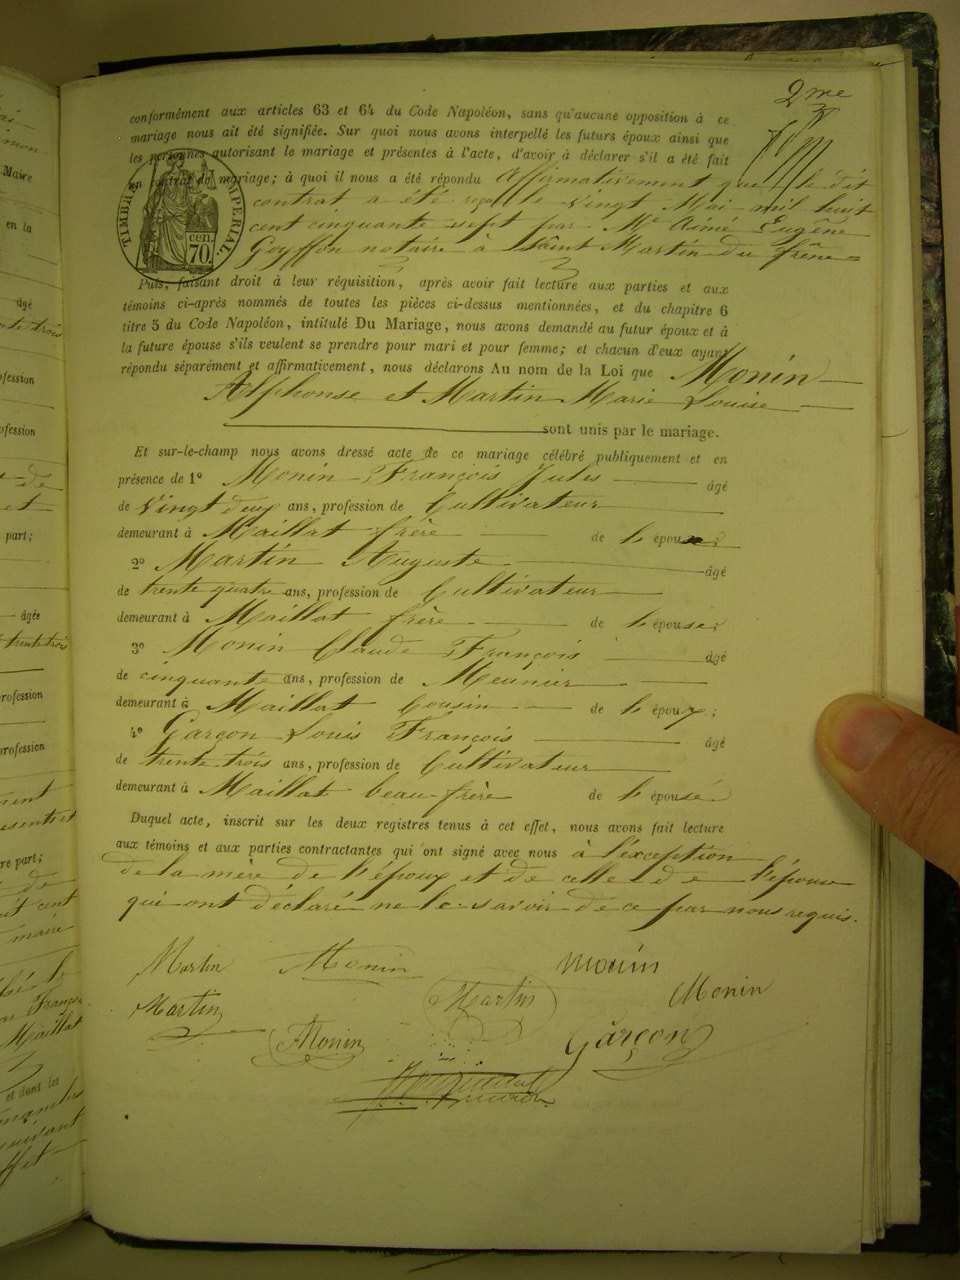 2me
conformément aux articles 63 et 64 du Code Napoléon, sans qu'aucune opposition à ce
mariage nous ait été signifiée. Sur quoi nous avons interpellé les futurs époux ainsi que
les personnes autorisant le mariage et présentes à l'acte, d'avoir à déclarer s'il a été fait
un contrat de mariage; à quoi il nous a été répondu Affirmativement que le dit
contrat a été reçu le vingt Mai mil huit
cent cinquante sept par Me Aimé Eugène
Goyffon notaire à Saint Martin du frêne =
TIMBRE IMPERIAL
70 cen.
Puis, faisant droit à leur réquisition, après avoir fait lecture aux parties et aux
témoins ci-après nommés de toutes les pièces ci-dessus mentionnées, et du chapitre 6
titre 5 du Code Napoléon, intitulé Du Mariage, nous avons demandé au futur époux et à
la future épouse s'ils veulent se prendre pour mari et pour femme; et chacun d'eux ayant
répondu séparément et affirmativement, nous déclarons Au nom de la Loi que Monin
Alphonse et Martin Marie Louise
sont unis par le mariage.
Et sur-le-champ nous avons dressé acte de ce mariage célébré publiquement et en
présence de 1º Monin François Jules âgé
de vingt deux ans, profession de Cultivateur
demeurant à Maillat frère de l'époux;
2º Martin Auguste âgé
de trente quatre ans, profession de Cultivateur
demeurant à Maillat frère de l'épouse;
3º Monin Claude François âgé
de cinquante ans, profession de Meunier
demeurant à Maillat Cousin de l'époux;
4º Garçon Louis François âgé
de trente trois ans, profession de Cultivateur
demeurant à Maillat beau-frère de l'épouse
Duquel acte, inscrit sur les deux registres tenus à cet effet, nous avons fait lecture
aux témoins et aux parties contractantes qui ont signé avec nous à l'exception
de la mère de l'époux et de celle de l'épouse
qui ont déclaré ne le savoir de ce par nous requis.
Martin Monin Monin
Martin Martin Monin
Monin Garçon
Maire
en la
âgé
profession
profession
de
et
part;
âgée
trente trois
profession
profession
part;
de
cent
François
Maillat
et dont les